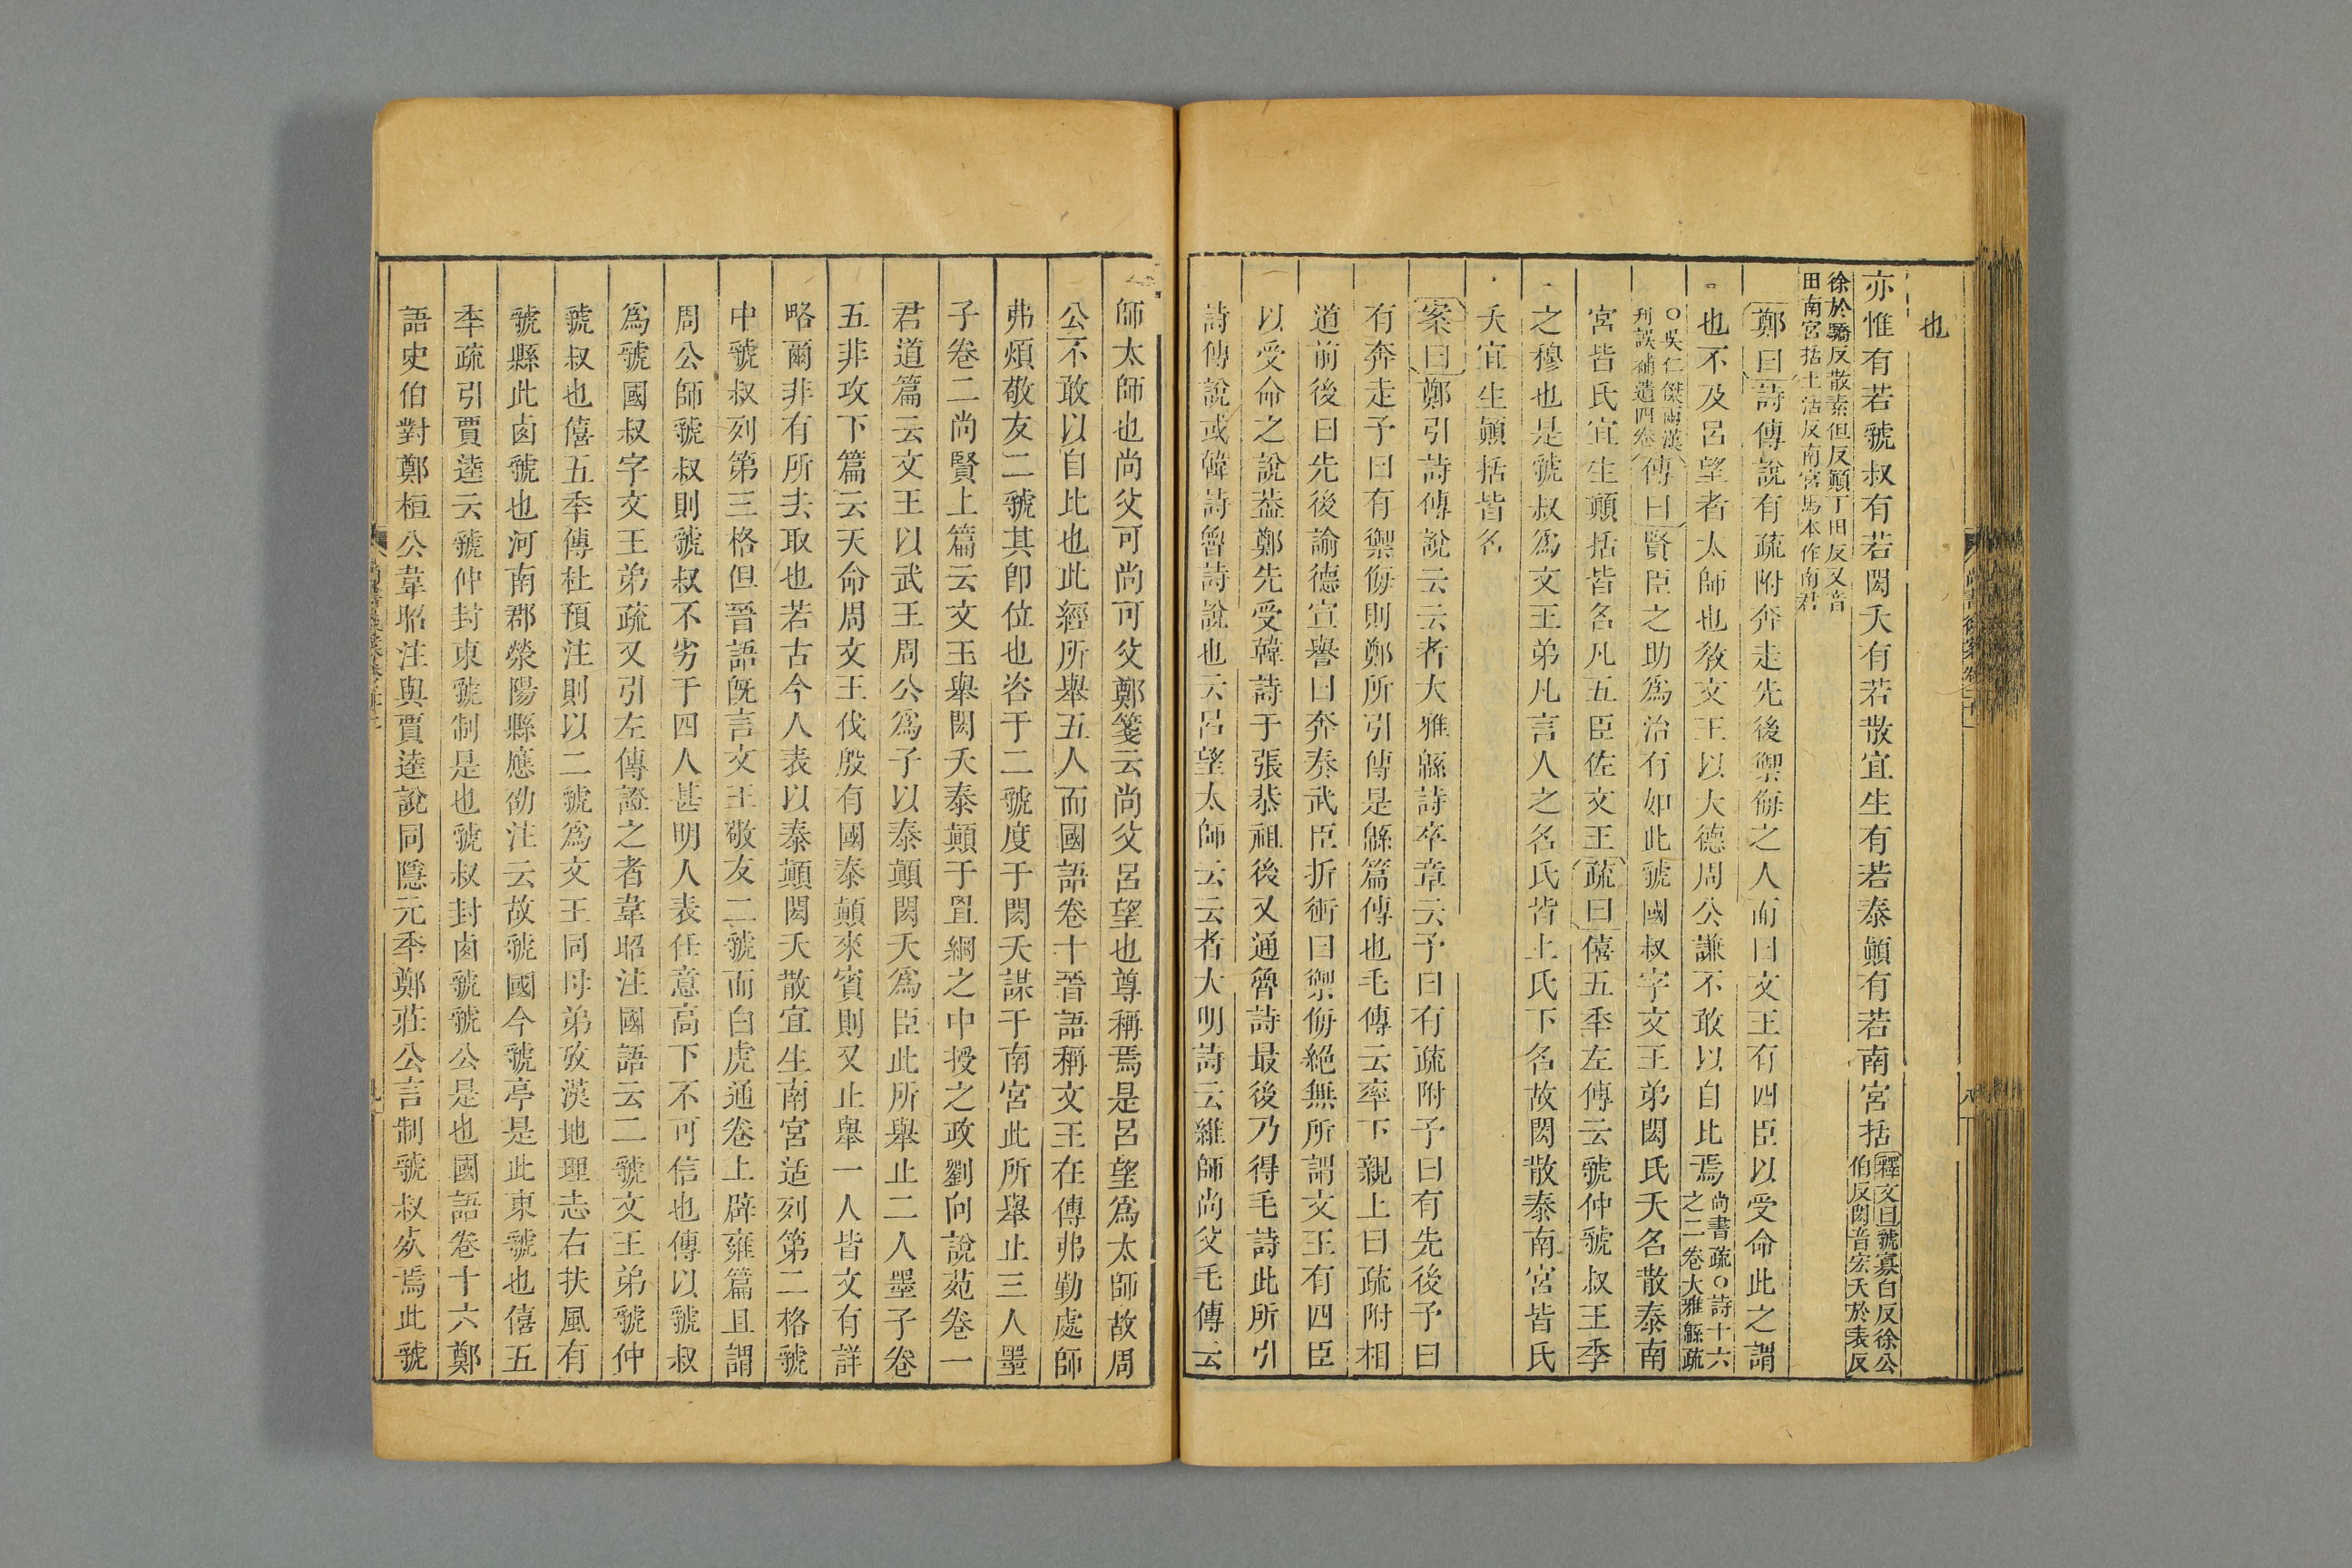 也
亦惟有若虢叔有若閎夭有若散宜生有若泰顚有若南宮括釋文曰虢寡白反徐公
伯反閎音宏夭於表反
徐於驕反散素但反顚丁田反又音
田南宮括工活反南宮馬本作南君
鄭曰詩傳說有疏附奔走先後禦侮之人而曰文王有四臣以受命此之謂
也不及呂望者太師也敎文王以大德周公謙不敢以自比焉尚書疏○詩十六
之二卷大雅緜疏
○吳仁傑兩漢
刋誤補遺四卷傳曰賢臣之助爲治有如此虢國叔字文王弟閎氏夭名散泰南
宮皆氏宜生顚括皆名凡五臣佐文王疏曰僖五秊左傳云虢仲虢叔王季
之穆也是虢叔爲文王弟凡言人之名氏皆上氏下名故閎散泰南宮皆氏
夭宜生顚括皆名
案曰鄭引詩傳說云云者大雅緜詩卒章云予曰有疏附予曰有先後予曰
有奔走予曰有禦侮則鄭所引傳是緜篇傳也毛傳云率下親上曰疏附相
道前後曰先後諭德宣譽曰奔奏武臣折衝曰禦侮絕無所謂文王有四臣
以受命之說葢鄭先受韓詩于張恭祖後又通魯詩最後乃得毛詩此所引
詩傳說或韓詩魯詩說也云呂望太師云云者大明詩云維師尚父毛傳云
師太師也尚父可尚可父鄭箋云尚父呂望也尊稱焉是呂望爲太師故周
公不敢以自比也此經所舉五人而國語卷十晉語稱文王在傅弗勤處師
弗煩敬友二虢其卽位也咨于二虢度于閎夭謀于南宮此所舉止三人墨
子卷二尚賢上篇云文王舉閎夭泰顚于罝網之中授之政劉向說苑卷一
君道篇云文王以武王周公爲子以泰顚閎夭爲臣此所舉止二人墨子卷
五非攻下篇云天命周文王伐殷有國泰顚來賓則又止舉一人皆文有詳
略爾非有所去取也若古今人表以泰顚閎夭散宜生南宮适列第二格虢
中虢叔列第三格但晉語旣言文王敬友二虢而白虎通卷上辟雍篇且謂
周公師虢叔則虢叔不劣于四人甚明人表任意高下不可信也傳以虢叔
爲虢國叔字文王弟疏又引左傳證之者韋昭注國語云二虢文王弟虢仲
虢叔也僖五秊傳杜預注則以二虢爲文王同母弟攷漢地理志右扶風有
虢縣此㐭虢也河南郡滎陽縣應劭注云故虢國今虢亭是此東虢也僖五
秊疏引賈逵云虢仲封東虢制是也虢叔封㐭虢虢公是也國語卷十六鄭
語史伯對鄭桓公韋昭注與賈逵說同隱元秊鄭莊公言制虢叔死焉此虢